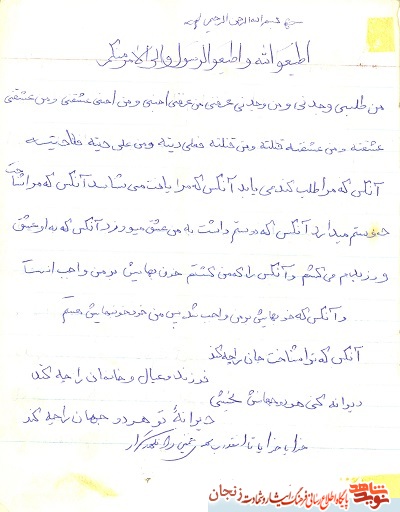 بسم الله الرحمن الرحیم
اطیعو الله و اطیعو الرسول و اولی الامر منکم
من طلبنی وجدنی و من وجدنی عرفنی من عرفنی احبنی و من احبنی عشقنی و من عشقنی
عشقته و من عشقته قتلته و من قتلته فعلی دیته و من علی دیته فانا دیته
آنکس که مرا طلب کند می یابد آنکس که مرا یافت می شناسد آنکس که مرا شناخت
دوستم میدارد آنکس که دوستم داشت به من عشق میورزد آنکس که به او عشق
ورزیدم می کشم و آنکس را که من کشتم خون بهایش بر من واجب است
و آنکس که خونبهایش بر من واجب شد پس من خود خونبهایش هستم
آنکس که تو را شناخت جان را چه کند
فرزند و عیال و خانمان را چه کند
دیوانه کنی هر دو جهانش بخشی
دیوانه تو هر دو جهان را چه کند
خدایا خدایا تا انقلاب مهدی خمینی را نگهدار
نوید شاهد
پایگاه اطلاع رسانی فرهنگ ایثار و شهادت زنجان